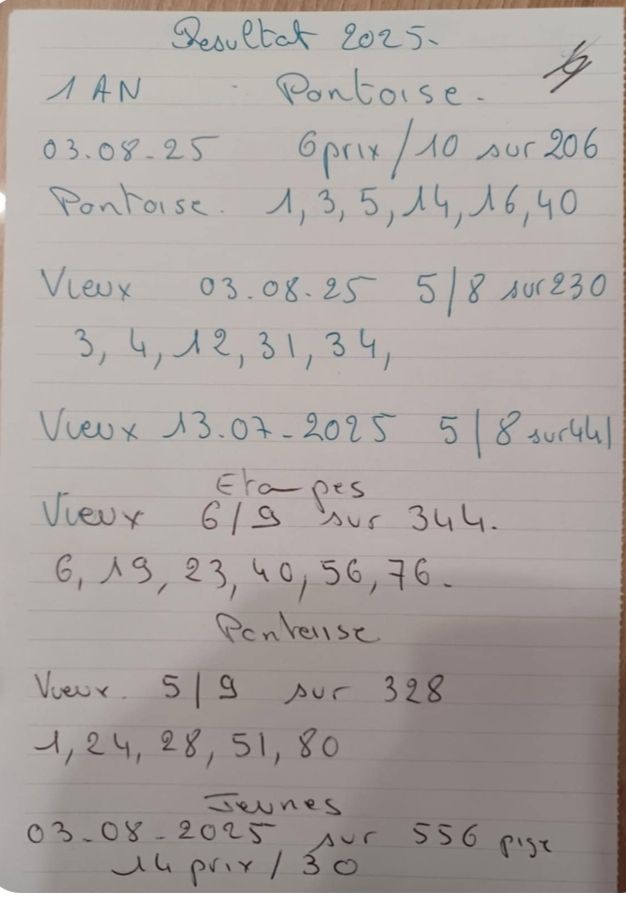 Resultat 2025-
1 AN Pontoise.
03.08-25 6prix/10 sur 206
Pontoise. 1, 3, 5, 14, 16, 40
Vieux 03.08.25 5/8 sur 230
3, 4, 12, 31, 34,
Vieux 13.07-2025 5/8 sur 441
Etampes
Vieux 6/9 sur 344.
6, 19, 23, 40, 56, 76.
Pontoise
Vieux. 5/9 sur 328
1, 24, 28, 51, 80
Jeunes
03-08-2025 sur 556 pige
14 prix / 30